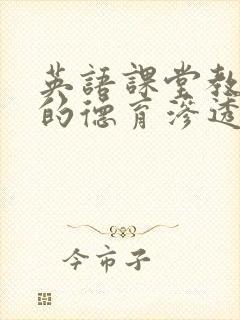 英語課堂教
的德育滲透
今市子